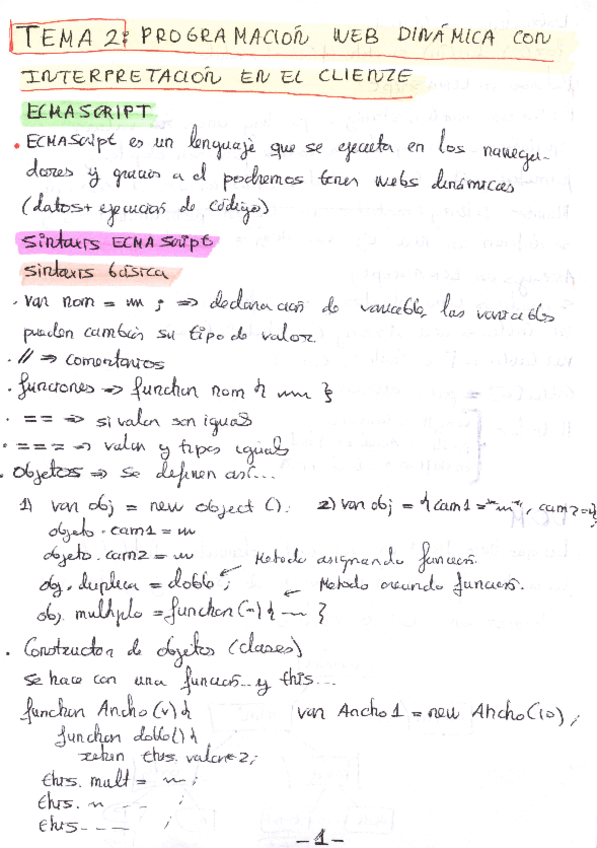 TEMA 2: PROGRAMACIÓN WEB DINÁMICA CON
INTERPRETACIÓN EN EL CLIENTE
ECMASCRIPT
• ECMAScript es un lenguaje que se ejecuta en los navega-
dores y gracias a el podremos tener webs dinámicas
(datos + ejecución de código)
Sintaxis ECMAScript
Sintaxis básica
· var nom = m ; => declaración de variable, las variables
pueden cambiar su tipo de valor.
· // => comentarios
· funciones => function nom { }
· == => si valor son igual
· === => valor y tipos igual
· Objetos => se definen así...
1) var obj = new object (). 2) var obj = { cam1 = "m", cam2 = }
objeto.cam1 = m
objeto.cam2 = m
Metodo asignando función.
obj.duplica = doble ;
Metodo creando función.
obj.multiplo = function(n) { }
· Constructor de objetos (clases)
se hace con una función.. y this...
function Ancho(v) {
var Ancho1 = new Ancho(10) ;
function doble() {
return this.valor*2;
this.mult = ;
this. ;
this. ;
-1-